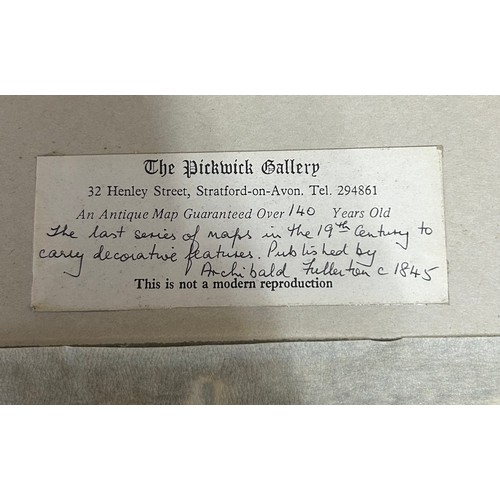 The Pickwick Gallery
32 Henley Street, Stratford-on-Avon. Tel. 294861
An Antique Map Guaranteed Over 140 Years Old
The last series of maps in the 19th Century to
carry decorative features. Published by
Archibald Fullerton c 1845
This is not a modern reproduction